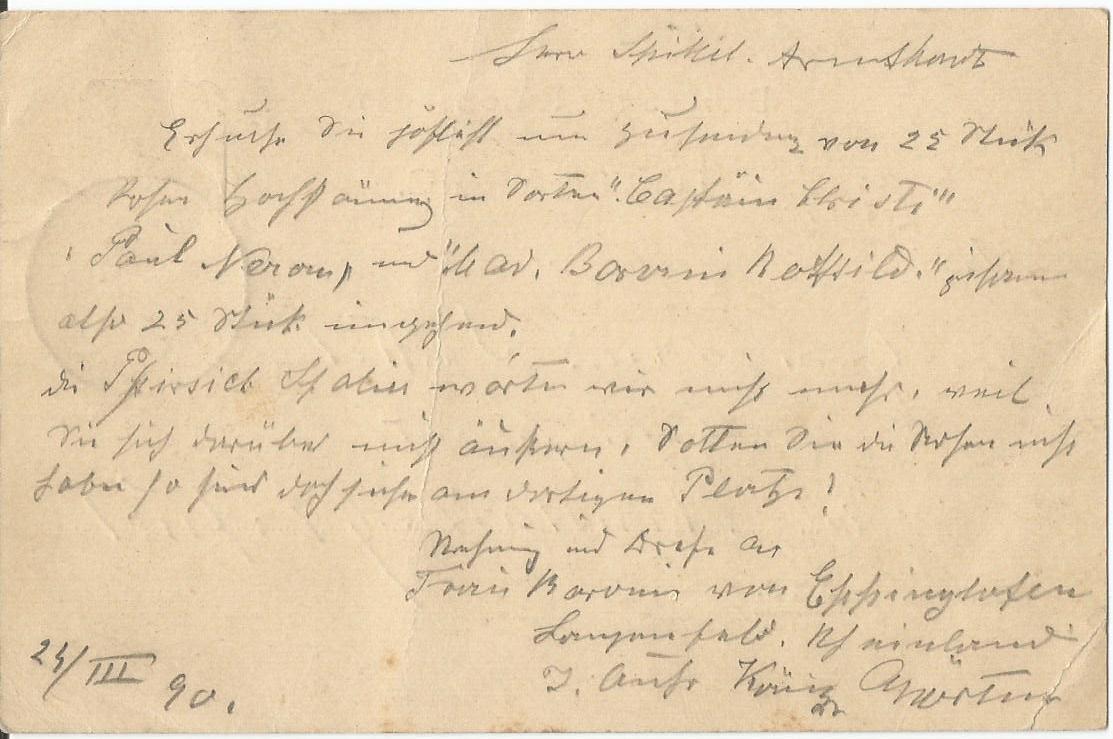 Herr Spittel. Arnstadt
Ersuche Sie höflichst um Zusendung von 25 Stück
Rosen Hochstämmig in Sorten "Captain Christi"
"Paul Neron", und "Mad. Baronin Rothsild."
also 25 Stück umgehend.
die Pfirsich wir nicht mehr, weil
Sie sich darüber nicht äußern, Sollten Sie die Rosen nicht
haben so sind doch am dortigen Platze!
Rechnung und der
Frau Baronin von Eppinghofen
Langenfeld. Rheinland
König Gärtner
24/III 90.